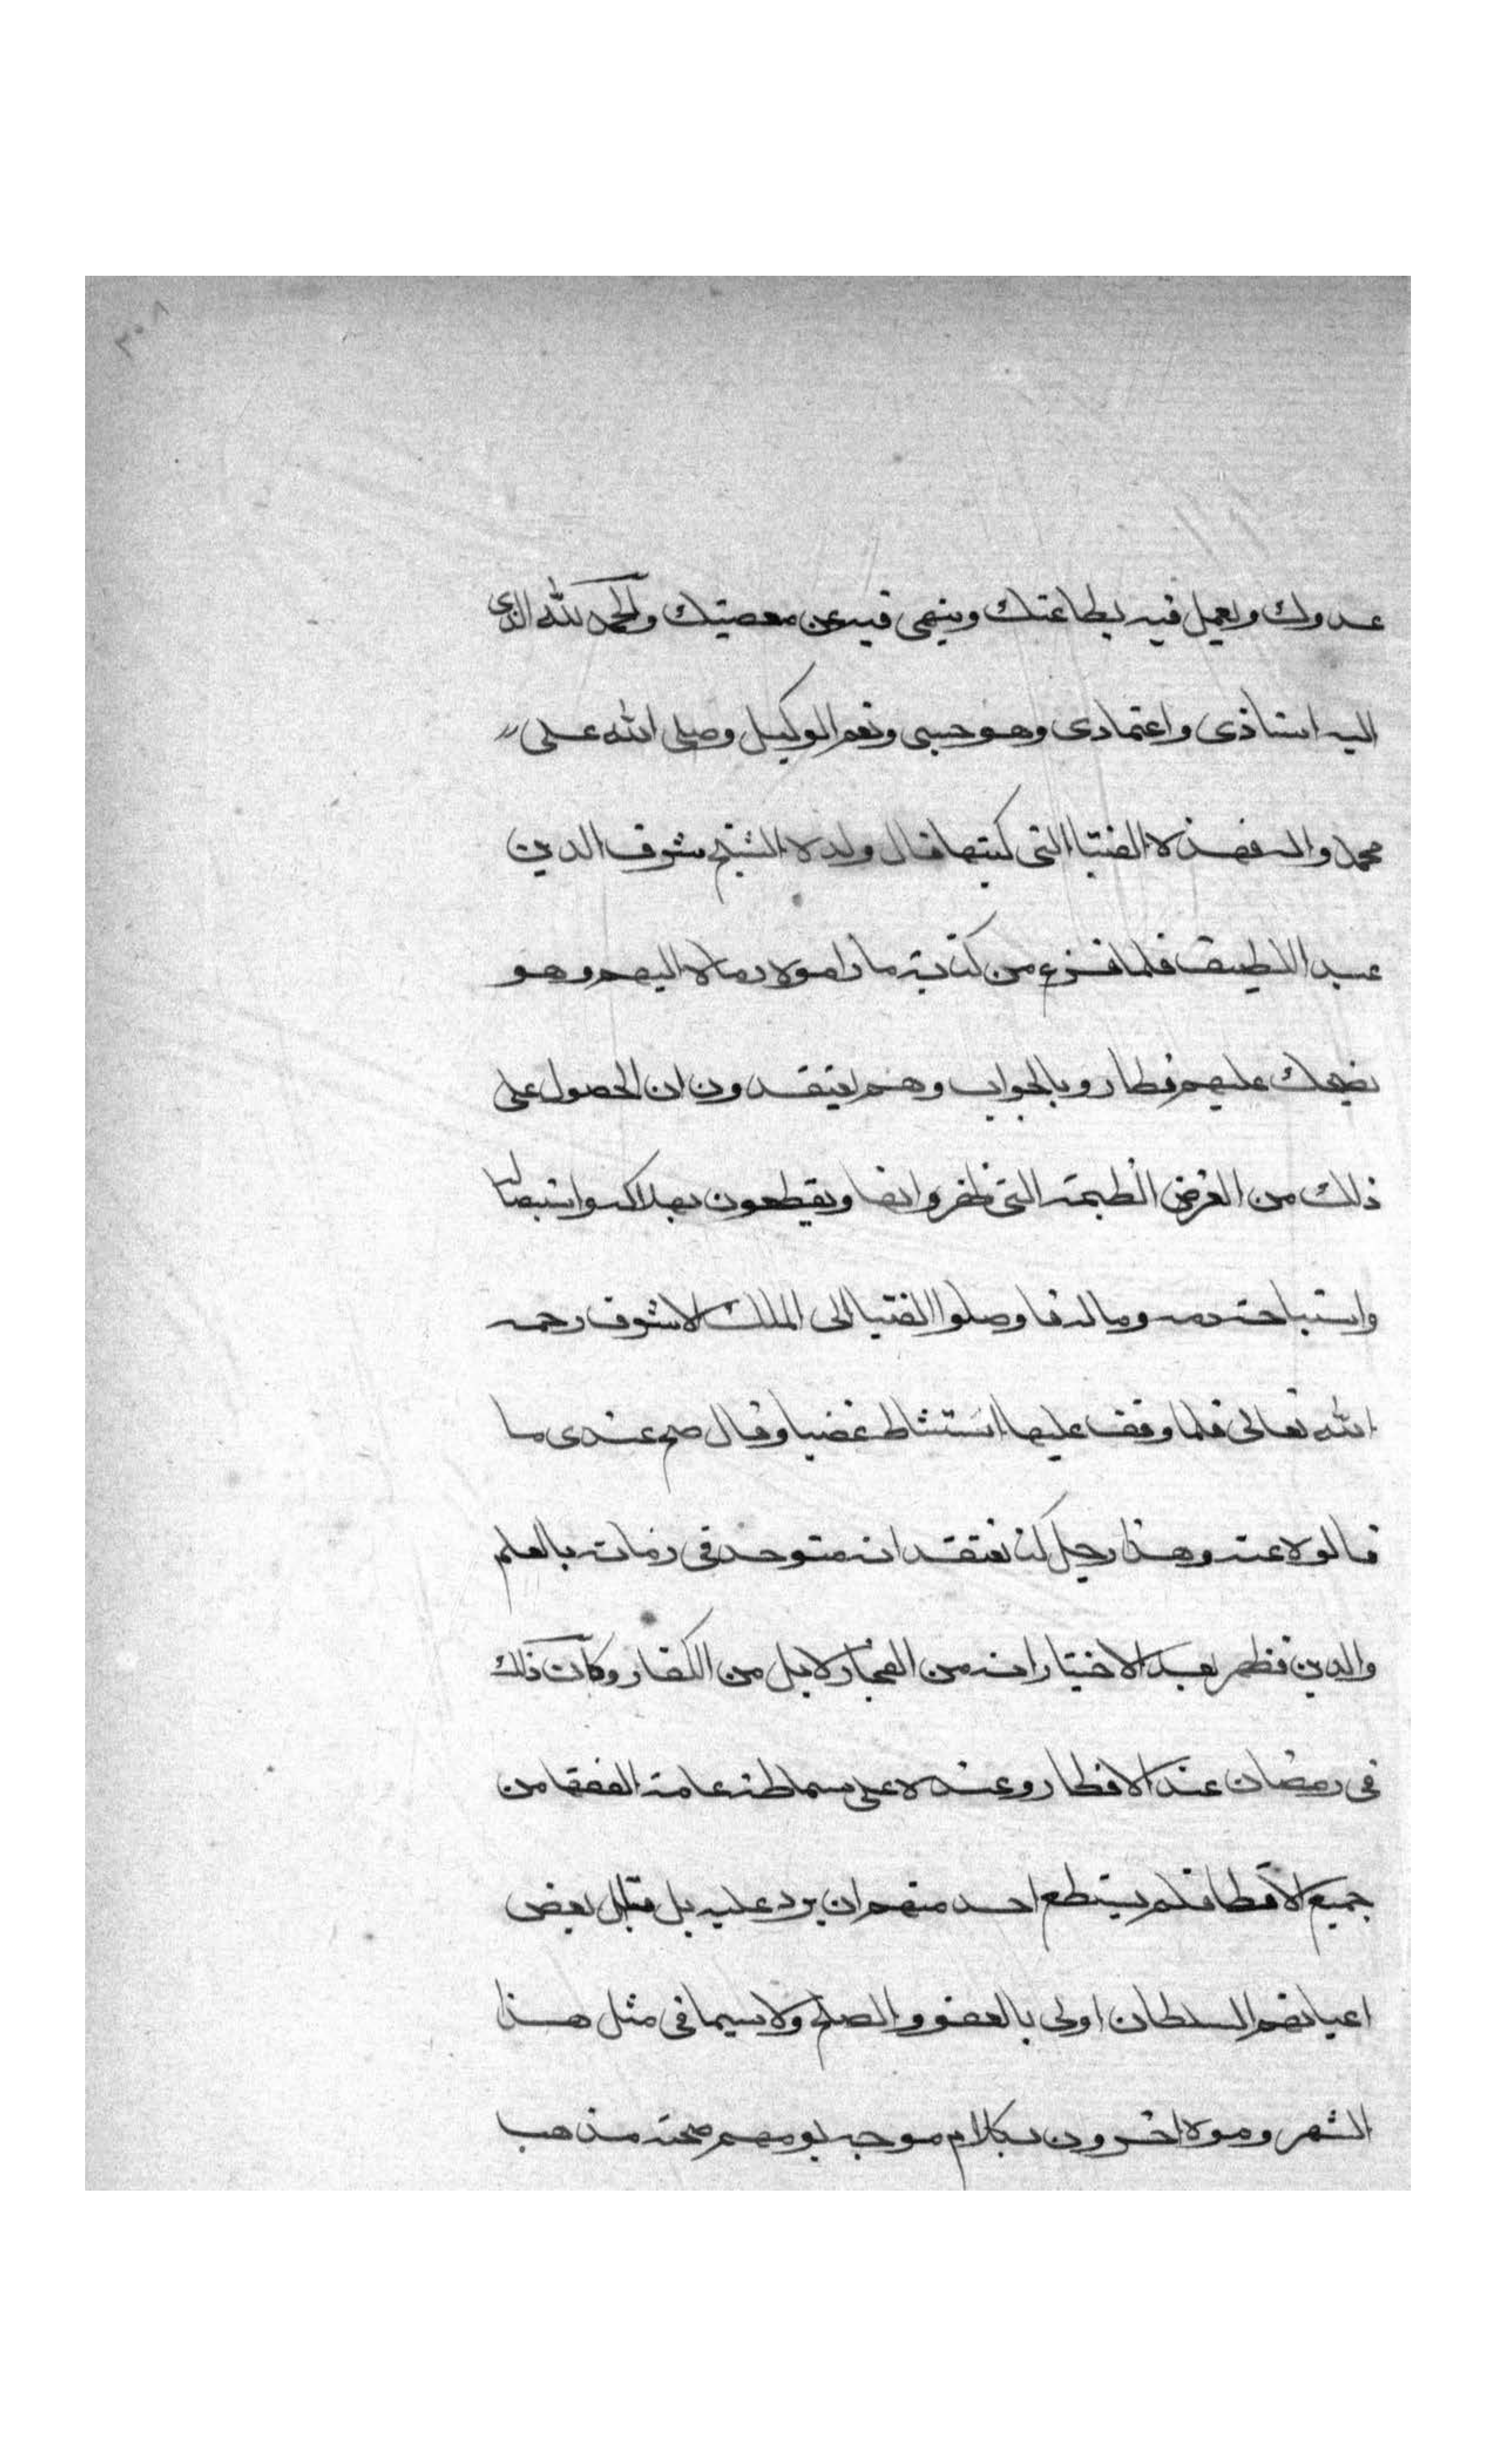 ٢٠٨
عدوك ويعمل فيه بطاعتك وينهى فيه عن معصيتك والحمد لله الذى
اليه استاذى واعتمادى وهو حسبى ونعم الوكيل وصلى الله على
محمد واله فهذه الفتيا التى كتبها قال ولده الشيخ شرف الدين
عبد اللطيف فلما فرغ من كتابة ما راموه رماه اليهم وهو
يضحك عليهم فطاروا بالجواب وهم يعتقدون ان الحصول على
ذلك من الفرض العظيمة التى ظفروا بها ويقطعون بهلاكه واستيصاله
واستباحة دمه وماله فاوصلوا الفتيا الى الملك الاشرف رحمه
الله تعالى فلما وقف عليها استشاط غضبا وقال صح عندى ما
قالوه عنه وهذا رجل كنا نعتقد انه متوحد فى زمانه بالعلم
والدين فظهر بعد الاختبار انه من الفجار لا بل من الكفار وكان ذلك
فى رمضان عند الافطار وعنده على سماطه عامة الفقها من
جميع الاقطا فلم يستطع احد منهم ان يرد عليه بل قال بعض
اعيانهم السلطان اولى بالعفو والصلح ولا سيما فى مثل هذا
الشهر وموه اخرون بكلام موجه يوهم صحة مذهب